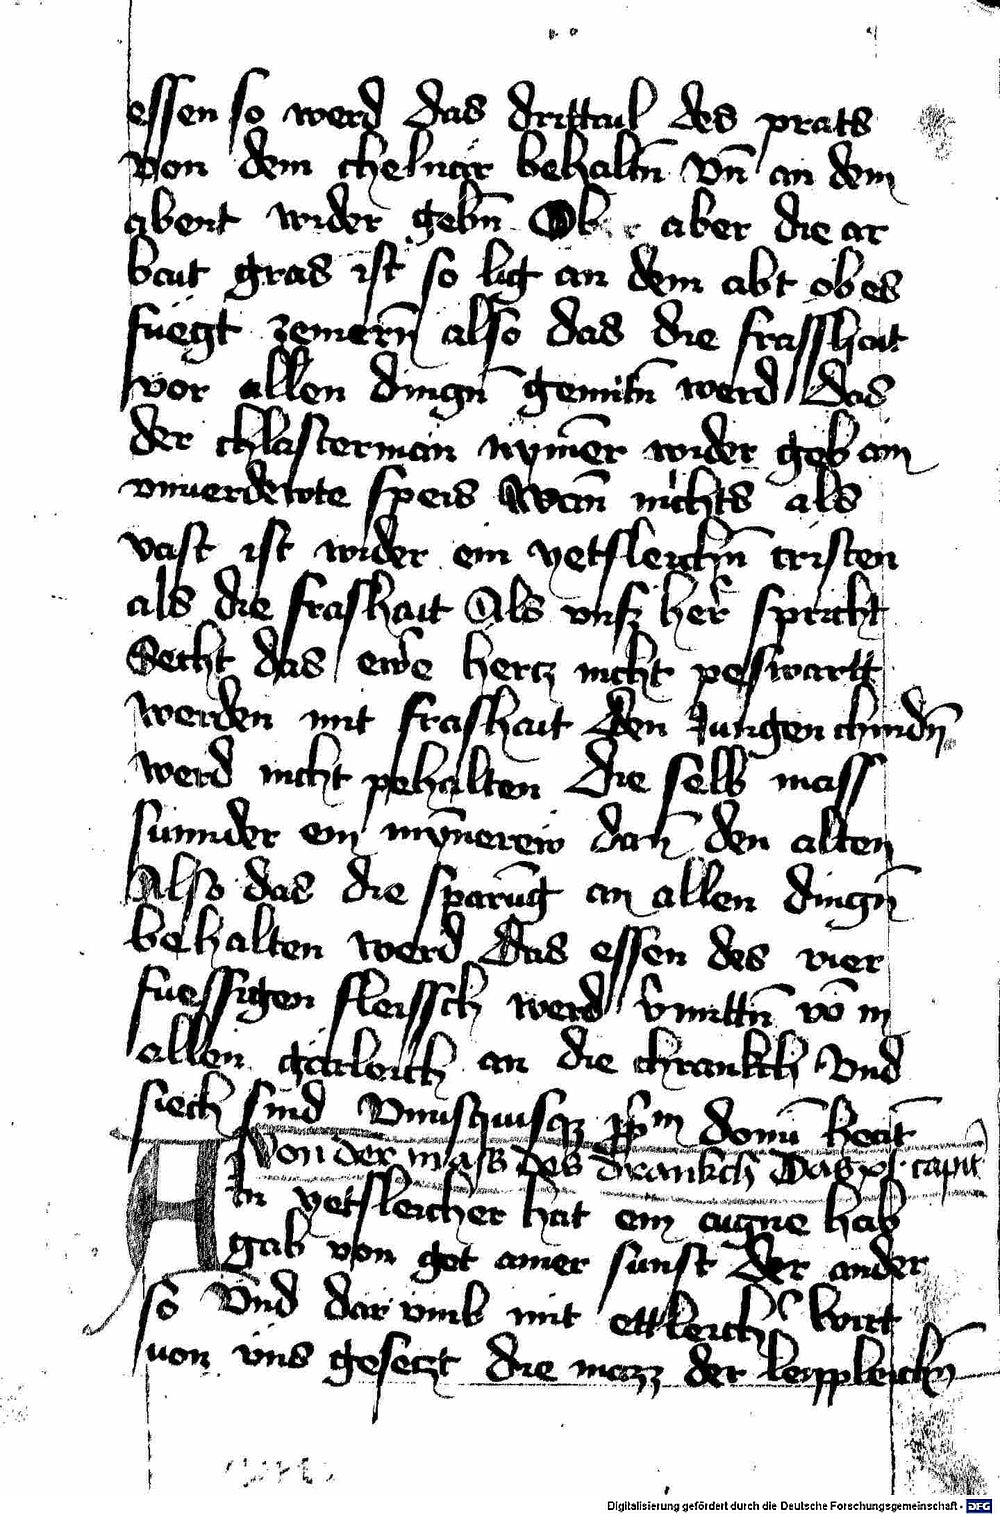 essen so werd das drittail des prats
von dem chelnär behaltn̄ vn̄ an dem
abent wider gebn̄ Ob aber die ar
bait gras ist so lig an dem abt ob es
fuegt zemern̄ also das die frasshait
vor allen dingn̄ gemitn̄ werd Das
der chlosterman nym̄er wider geb ain
vnuerdewte speis Wan̄ nichts als
vast ist wider ein yetsleichn̄ cristen
als die frashait Als vnsz her spricht
Secht das ewe hercz nicht peswartt
werden mit frashait Den Jungen chindn̄
werd nicht pehalten Die selb mass
sunnder ein myn̄erew dan̄ den alten
Also das die sparūg an allen dingn̄
behalten werd Das essen des vier
fuessigen fleissch werd v̄mittn̄ vō in
allen gärleich an die chrankch Vnd
siech sind Vnusquisqz pp̄m donū h̄eāt
Von der mass des drankch Das xl capit
Ain yetsleicher hat ein aigne hab
gab von got ainer sunst der ander
so Vnd dar vmb mit ettleich wirt
von vns gesetzt die mazz der leypleichn̄
Digitalisierung gefördert durch die Deutsche Forschungsgemeinschaft - DFG